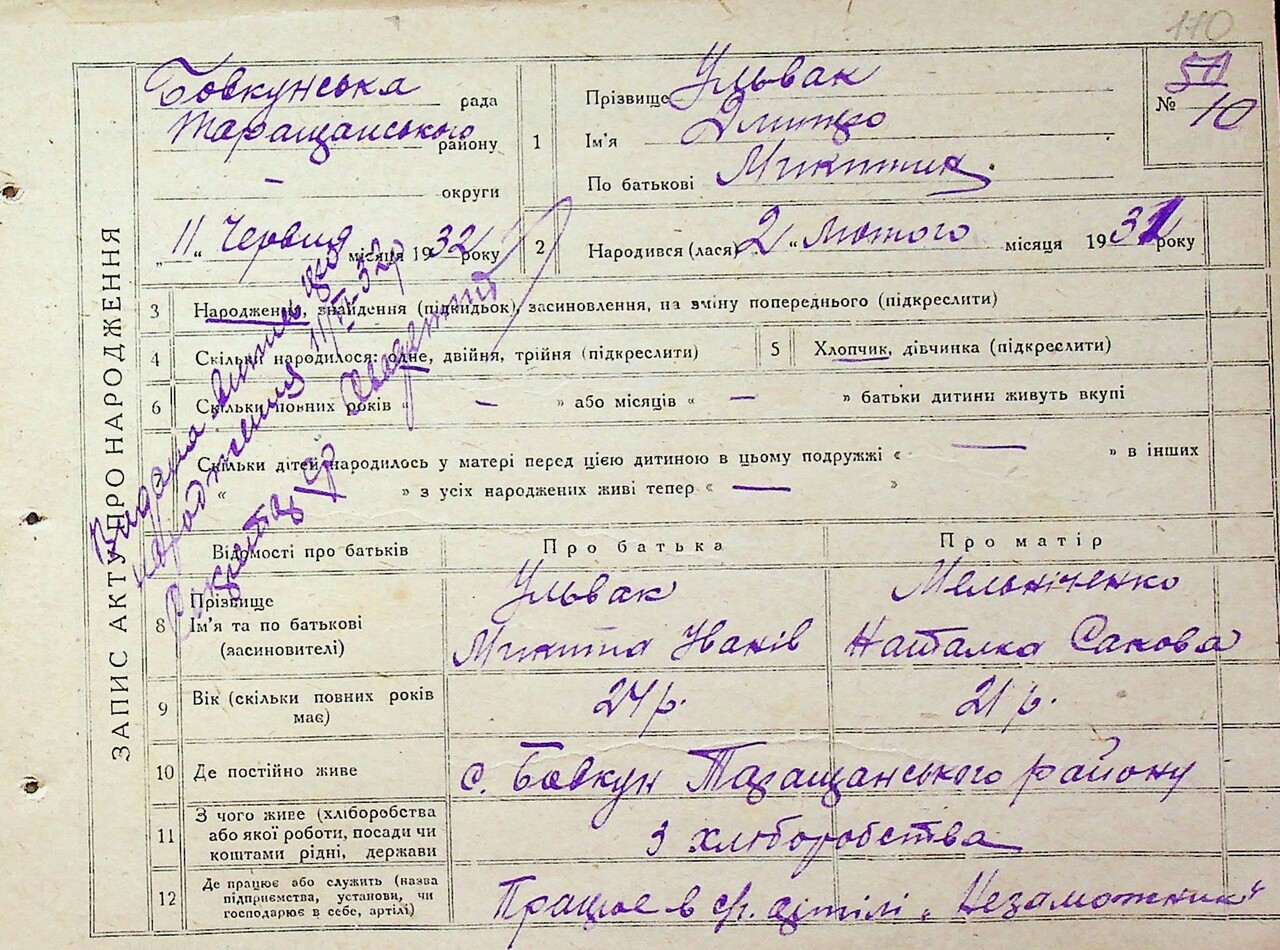 110
ЗАПИС АКТУ ПРО НАРОДЖЕННЯ
Бовкунська рада
Таращанського району
— округи
„11“ Червня місяця 1932 року
1 Прізвище Ульвак
Ім'я Дмитро
По батькові Микитин.
№ 511
10
2 Народився (лася) 2 “ Лютого місяця 1932 року
3 Народження, знайдення (підкидьок), засиновлення, на зміну попереднього (підкреслити)
4 Скільки народилося: одне, двійня, трійня (підкреслити)
5 Хлопчик, дівчинка (підкреслити)
6 Скільки повних років « — » або місяців « — » батьки дитини живуть вкупі
Скільки дітей народилось у матері перед цією дитиною в цьому подружжі « — » в інших
« » з усіх народжених живі тепер « — »
Видана витяг про
народження 11/VI-32р
Секретар с/р
Відомості про батьків Про батька Про матір
8 Прізвище
Ім'я та по батькові
(засиновителі)
Ульвак
Микита Іванів
Мельніченко
Наталка Савова
9 Вік (скільки повних років
має)
24 р. 21 р.
10 Де постійно живе с. Бовкун Таращанського району
11 З чого живе (хліборобства
або якої роботи, посади чи
коштами рідні, держави
З хлиборобства
12 Де працює або служить (назва
підприємства, установи, чи
господарює в себе, артілі)
Працює в с/г. артілі „Незаможник“